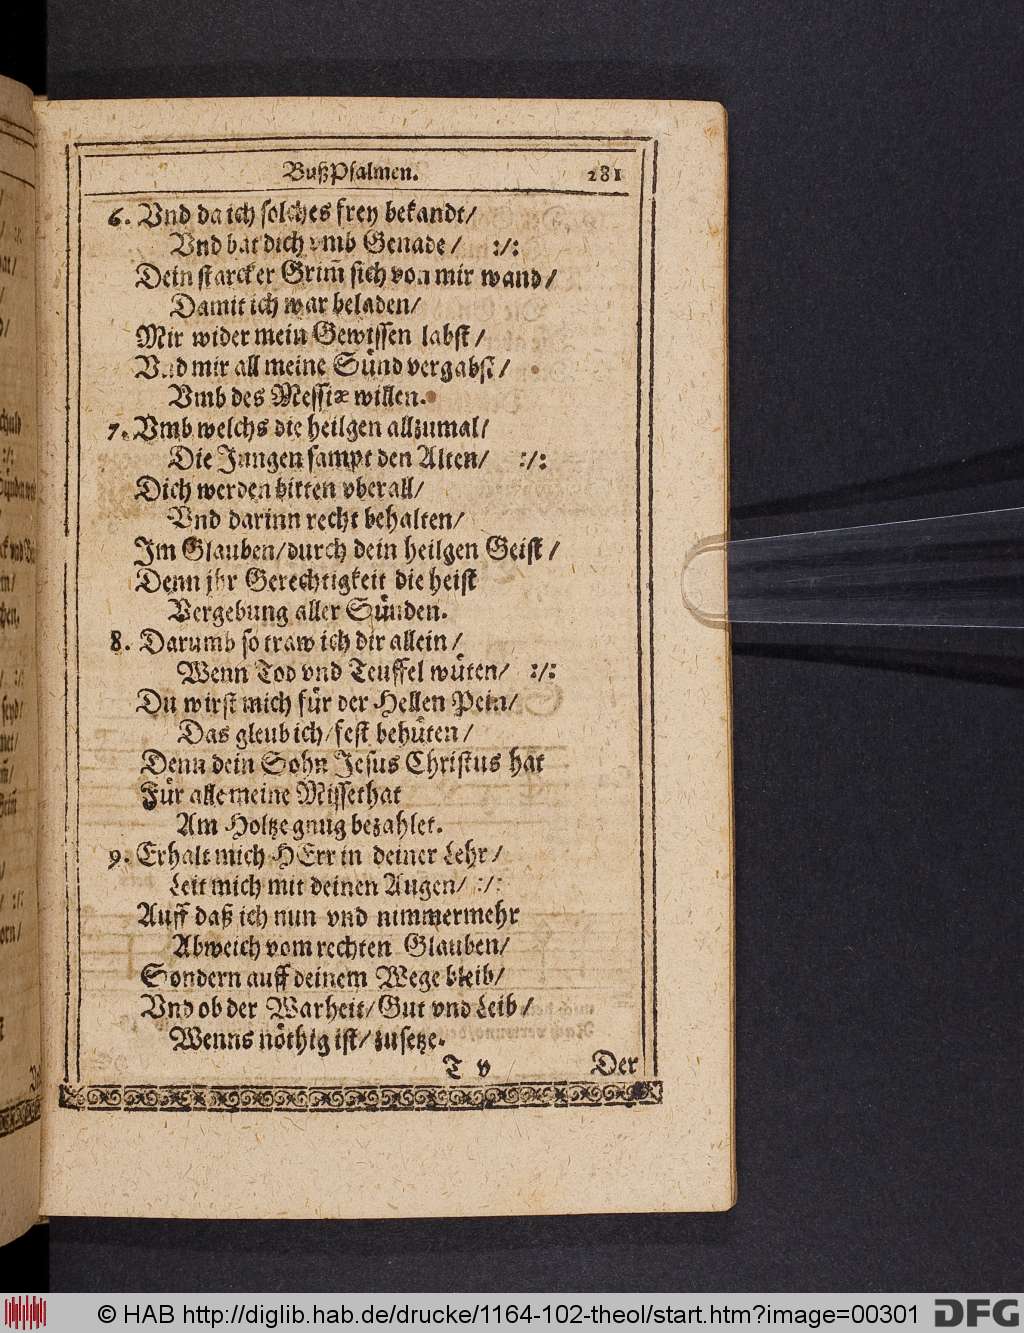 BußPsalmen. 281
6. Vnd da ich solches frey bekandt/
Vnd bat dich vmb Genade/ :/:
Dein starcker Grim̃ sich von mir wand/
Damit ich war beladen/
Mir wider mein Gewissen labst/
Vnd mir all meine Sünd vergabst/
Vmb des Messiæ willen.
7. Vmb welchs die heilgen allzumal/
Die Jungen sampt den Alten/ :/:
Dich werden bitten vberall/
Vnd darinn recht behalten/
Im Glauben/durch dein heilgen Geist/
Denn jhr Gerechtigkeit die heist
Vergebung aller Sünden.
8. Darumb so traw ich dir allein/
Wenn Tod vnd Teuffel wüten/ :/:
Du wirst mich für der Hellen Pein/
Das gleub ich/fest behüten/
Denn dein Sohn Jesus Christus hat
Für alle meine Missethat
Am Holtze gnug bezahlet.
9. Erhalt mich HErr in deiner Lehr/
Leit mich mit deinen Augen/ :/:
Auff daß ich nun vnd nimmermehr
Abweich vom rechten Glauben/
Sondern auff deinem Wege bleib/
Vnd ob der Warheit/Gut vnd Leib/
Wenns nöthig ist/zusetze.
T v Der
© HAB http://diglib.hab.de/drucke/1164-102-theol/start.htm?image=00301 DFG